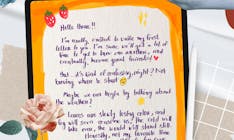 Hello there!!
I'm really excited to write my first
letter to you. I'm sure we'll get a lot of
time to get to know one another, and
eventually, become good friends!
But.. it's kind of confusing, right? Not
knowing where to start
Maybe we can begin by talking about
the weather?
Leaves are slowly losing color, and
will soon
take over, the world will stand still
my favourite time